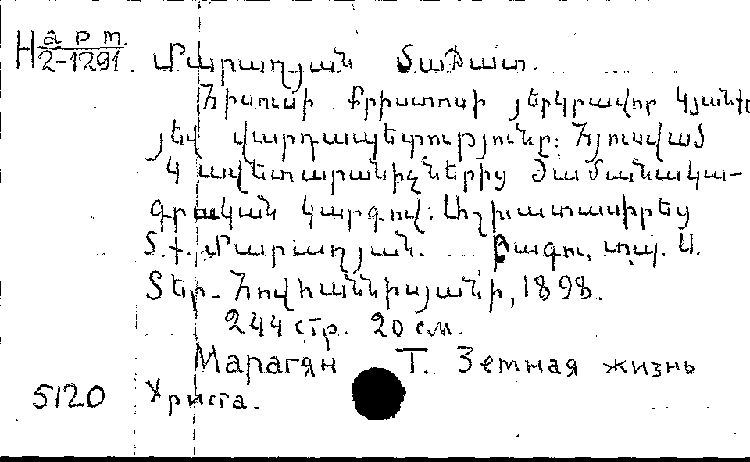 H арт 2-1291
Մարաղյան Տաճատ.
Հիսուսի Քրիստոսի յերկրավոր կյանքը
յեվ վարդապետությունը: Հյուսված
4 ավետարանիչներից ժամանակա-
գրական կարգով: Աշխատասիրեց
Տ. Մարաղյան. Բագու, տպ. Ա.
Տեր-Հովհաննիսյանի, 1898.
244 стр. 20 см.
Марагян Т. Земная жизнь
5120 Христа.